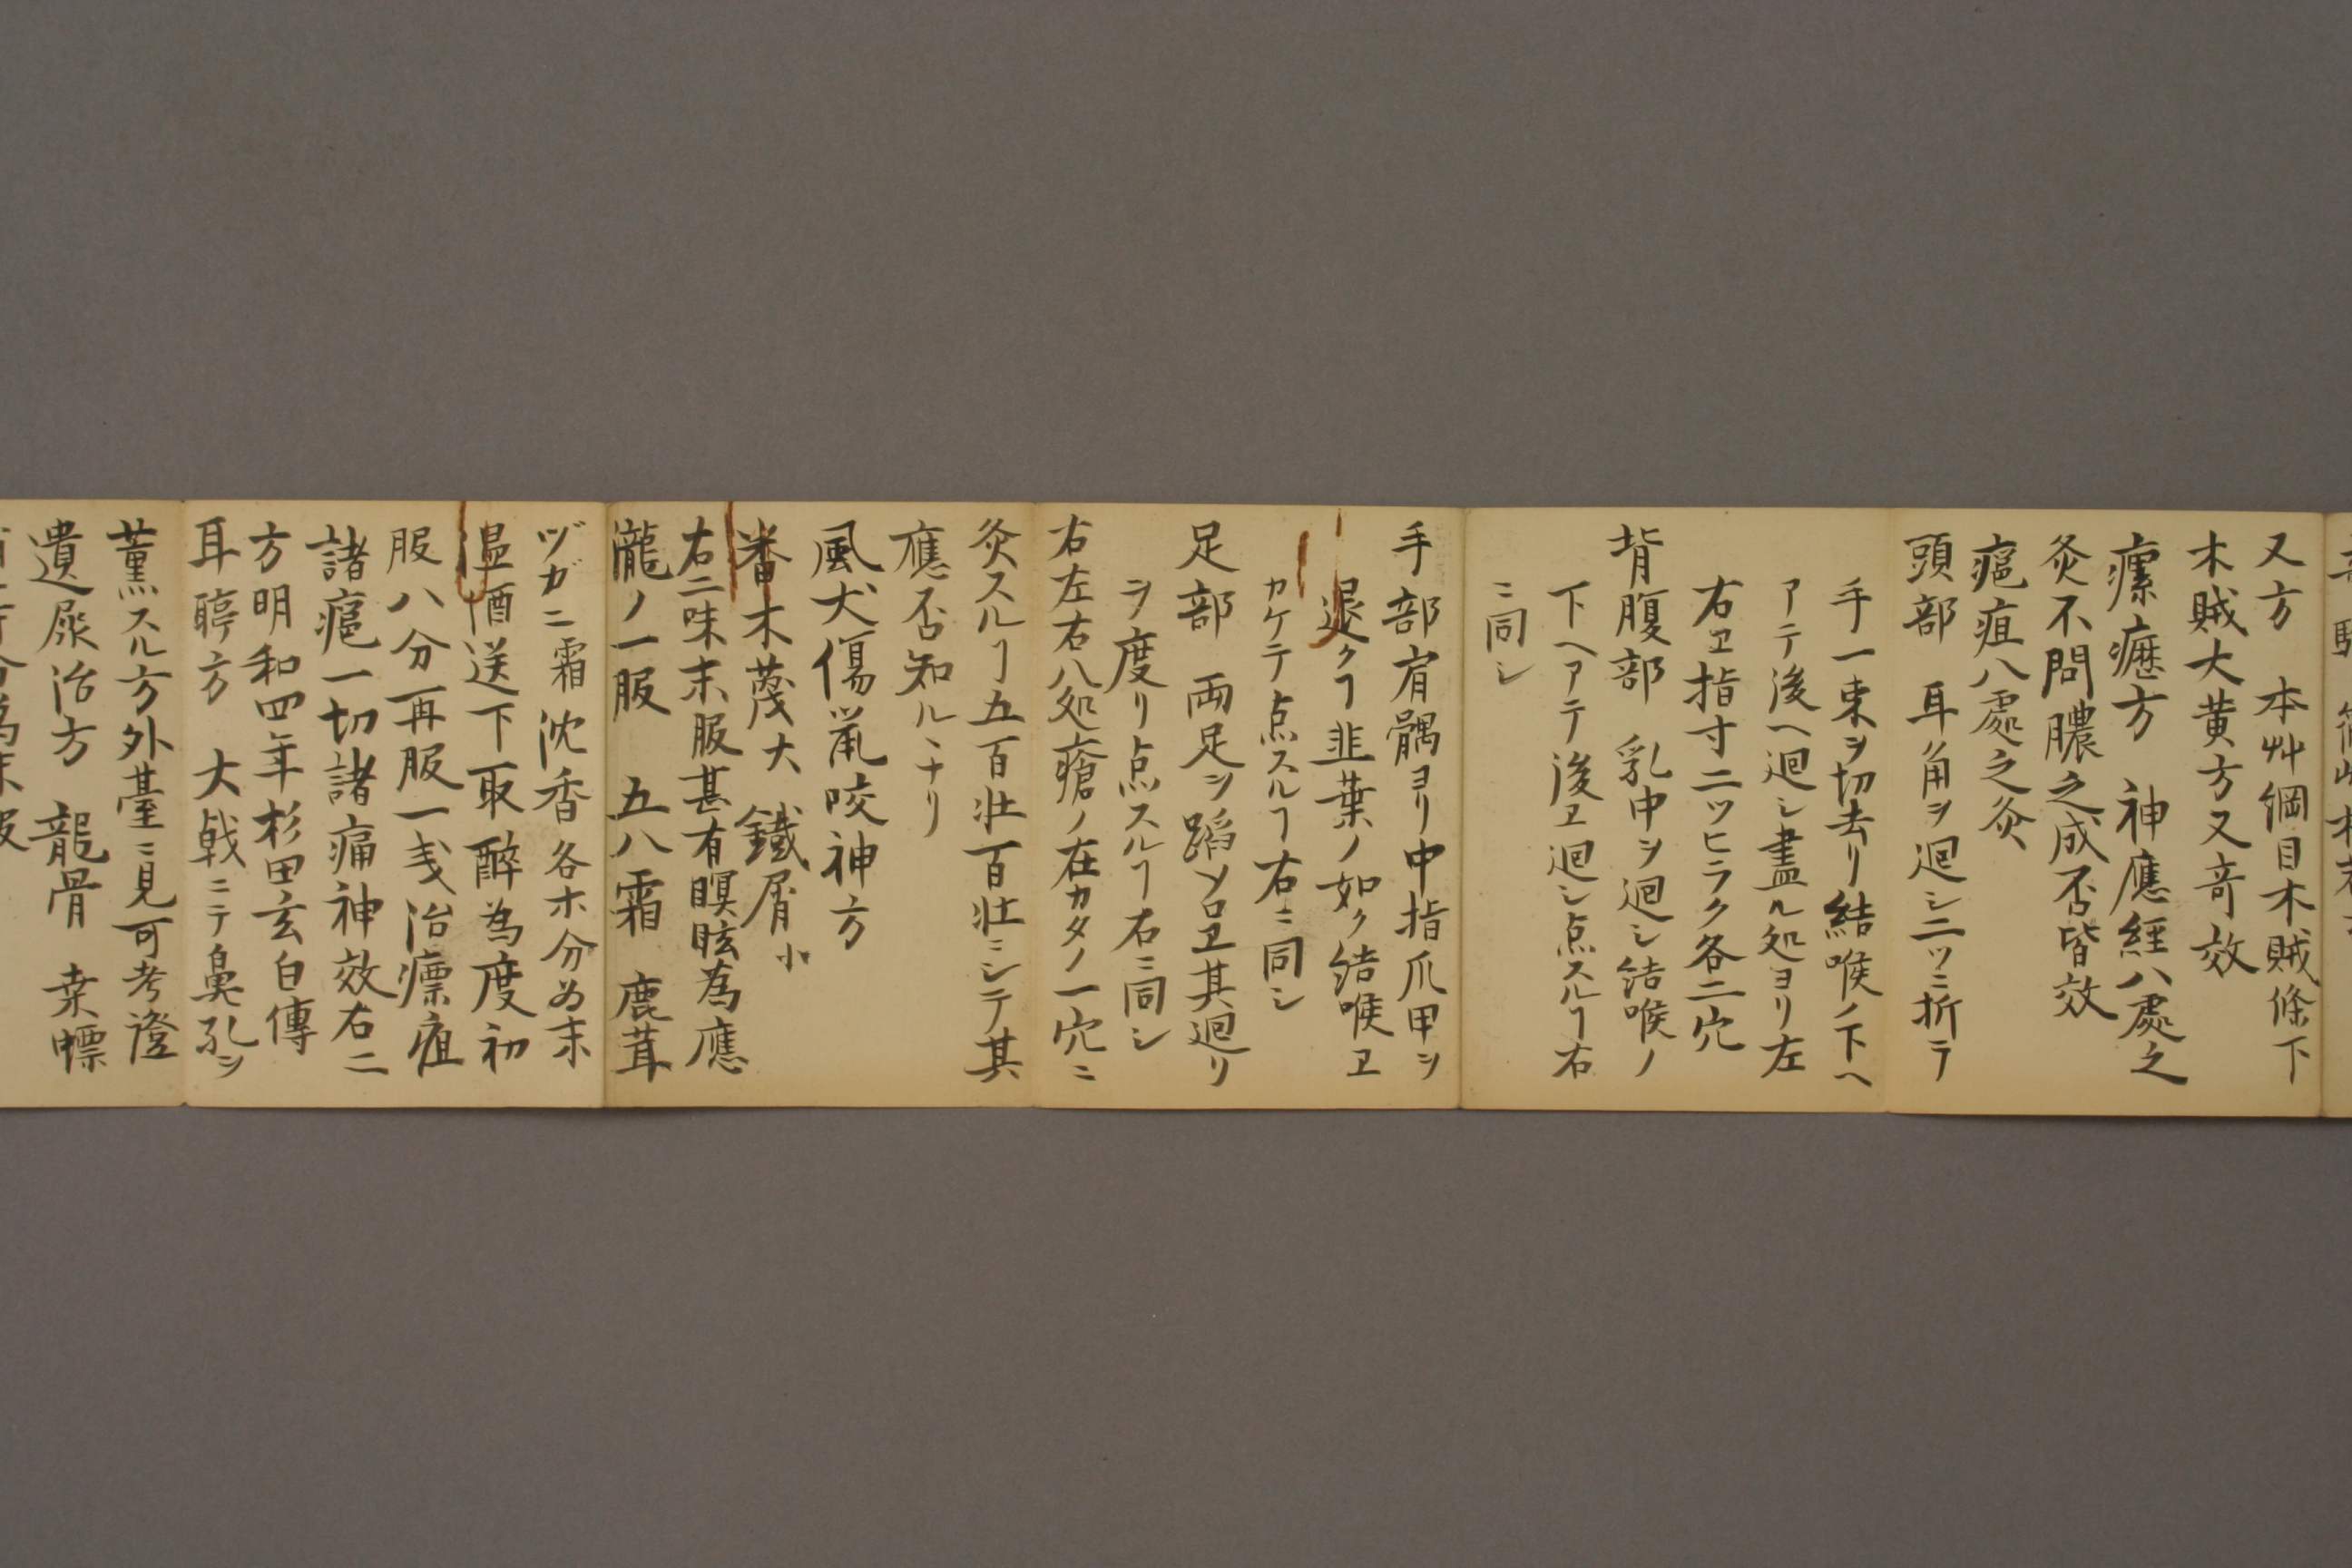 又方　本艸綱目木賊條下
木賊大黄方又奇效
瘰癧方　神應經八處之
灸不問膿之成否皆效
瘟疽八處之灸
頭部　耳角ヲ迴シ二ツニ折テ
手一束ヲ切去リ結喉ノ下ヘ
アテ後ヘ迴シ盡ル処ヨリ左
右ヱ指寸二ツヒラク各二穴
背腹部　乳中ヲ迴シ結喉ノ
下ヘアテ後ヱ迴シ点スルヿ右
ニ同シ
手部肩髃ヨリ中指爪甲ヲ
退クヿ韭葉ノ如ク結喉ヱ
カケテ点スルヿ右ニ同シ
足部　両足ヲ蹈ソロヱ其迴リ
ヲ度リ点スルヿ右ニ同シ
右左右八処瘡ノ在カタノ一穴ニ
灸スルヿ五百壮百壮ニシテ其
應否知ルヽナリ
風犬傷鼠咬神方
番木鼈大　鐵屑小
右二味末服甚有瞑眩為應
瀧ノ一服　五八霜　鹿茸
ヅガニ霜沈香各ホ分為末
温酒送下取醉為度初
服八分再服一戔治瘭疽
諸瘟一切諸痛神效右二
方明和四年杉田玄白傳
耳聤方　大戟ニテ鼻孔ヲ
薫スル方外臺ニ見可考證
遺尿治方　龍骨　桒螵